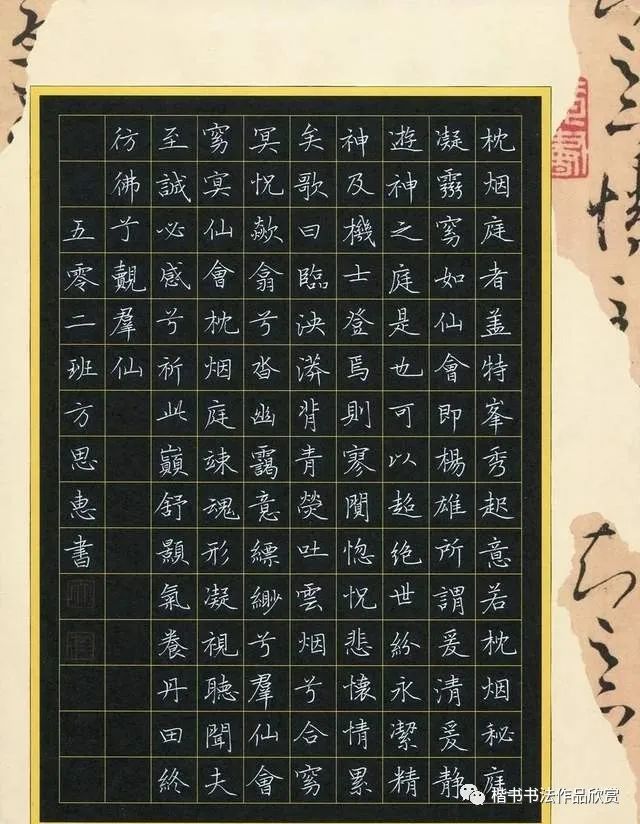 枕烟庭者盖特峯秀起意若枕烟秘庭
凝霧窅如仙會即楊雄所謂爰清爰静
遊神之庭是也可以超絶世紛永潔精
神及機士登焉則寥闃惚怳悲懷情累
矣歌曰臨泱漭背青熒吐雲烟兮合窅
冥怳歘翕兮沓幽靄意縹緲兮羣仙會
窅冥仙會枕烟庭竦魂形凝視聽聞夫
至誠必感兮祈此巔舒顥氣養丹田終
彷彿兮覿羣仙
五零二班方思惠書
楷书书法作品欣赏